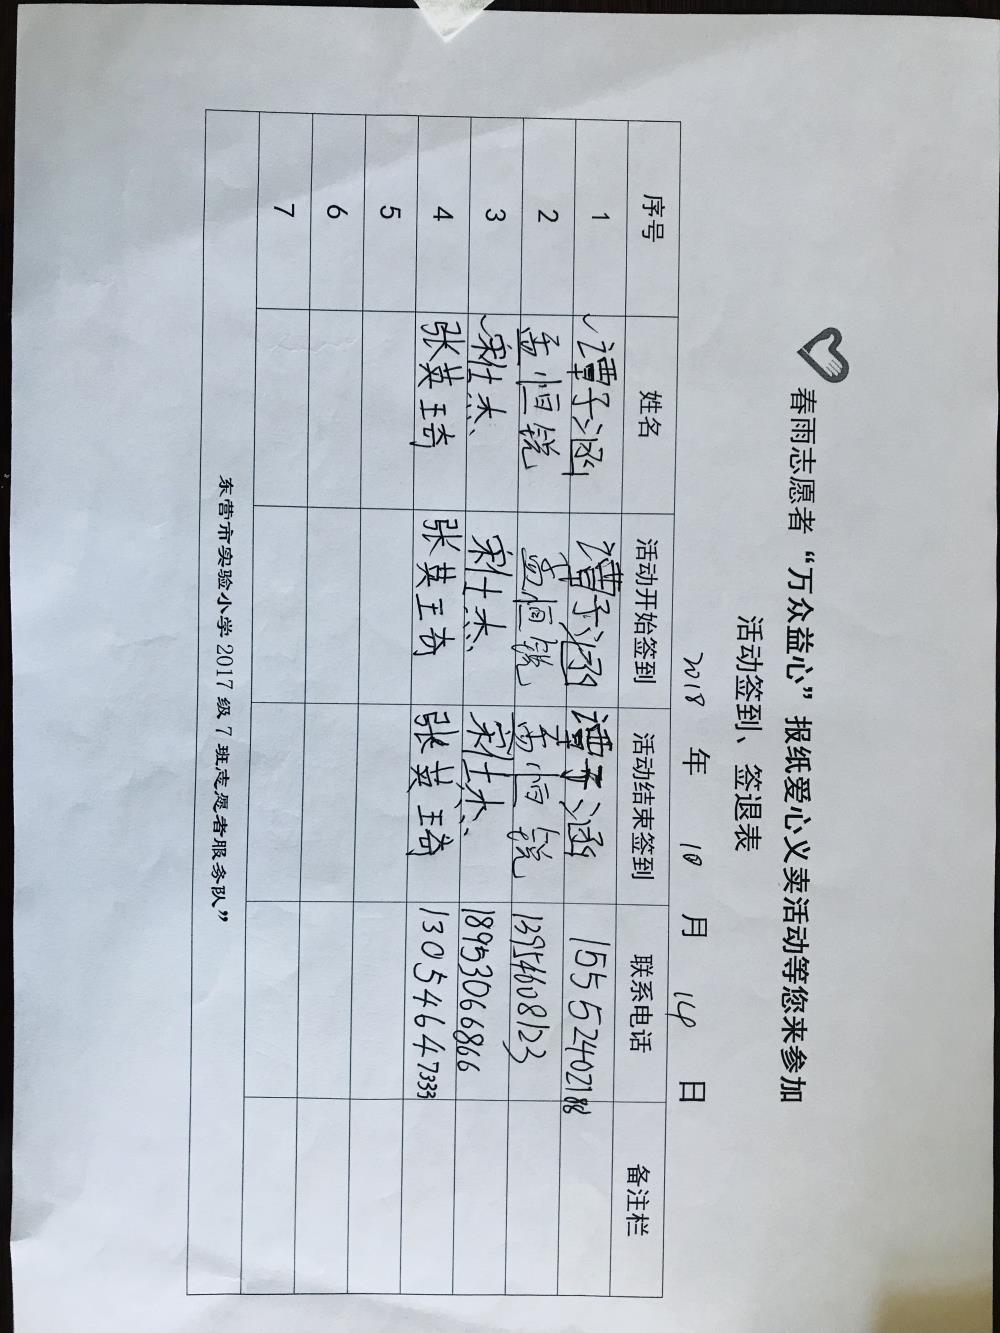 春雨志愿者“万众益心”报纸爱心义卖活动等您来参加
活动签到、签退表
2018 年 10 月 14 日
序号 姓名 活动开始签到 活动结束签到 联系电话 备注栏
1 谭子涵 谭子涵 谭子涵 15552402188
2 恒锐 恒锐 恒锐 13954608123
3 宋仕杰 宋仕杰 宋仕杰 18953066866
4 张英琦 张英琦 张英琦 13054647333
5
6
7
东营市实验小学 2017 级 7 班志愿者服务队”